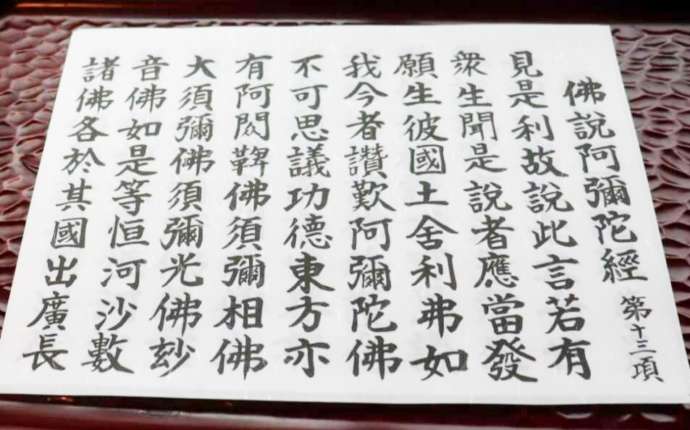 佛說阿彌陀經 第十三項
見是利故說此言若有
衆生聞是說者應當發
願生彼國土舍利弗如
我今者讃歎阿彌陀佛
不可思議功德東方亦
有阿閦鞞佛須彌相佛
大須彌佛須彌光佛玅
音佛如是等恒河沙數
諸佛各於其國出廣長